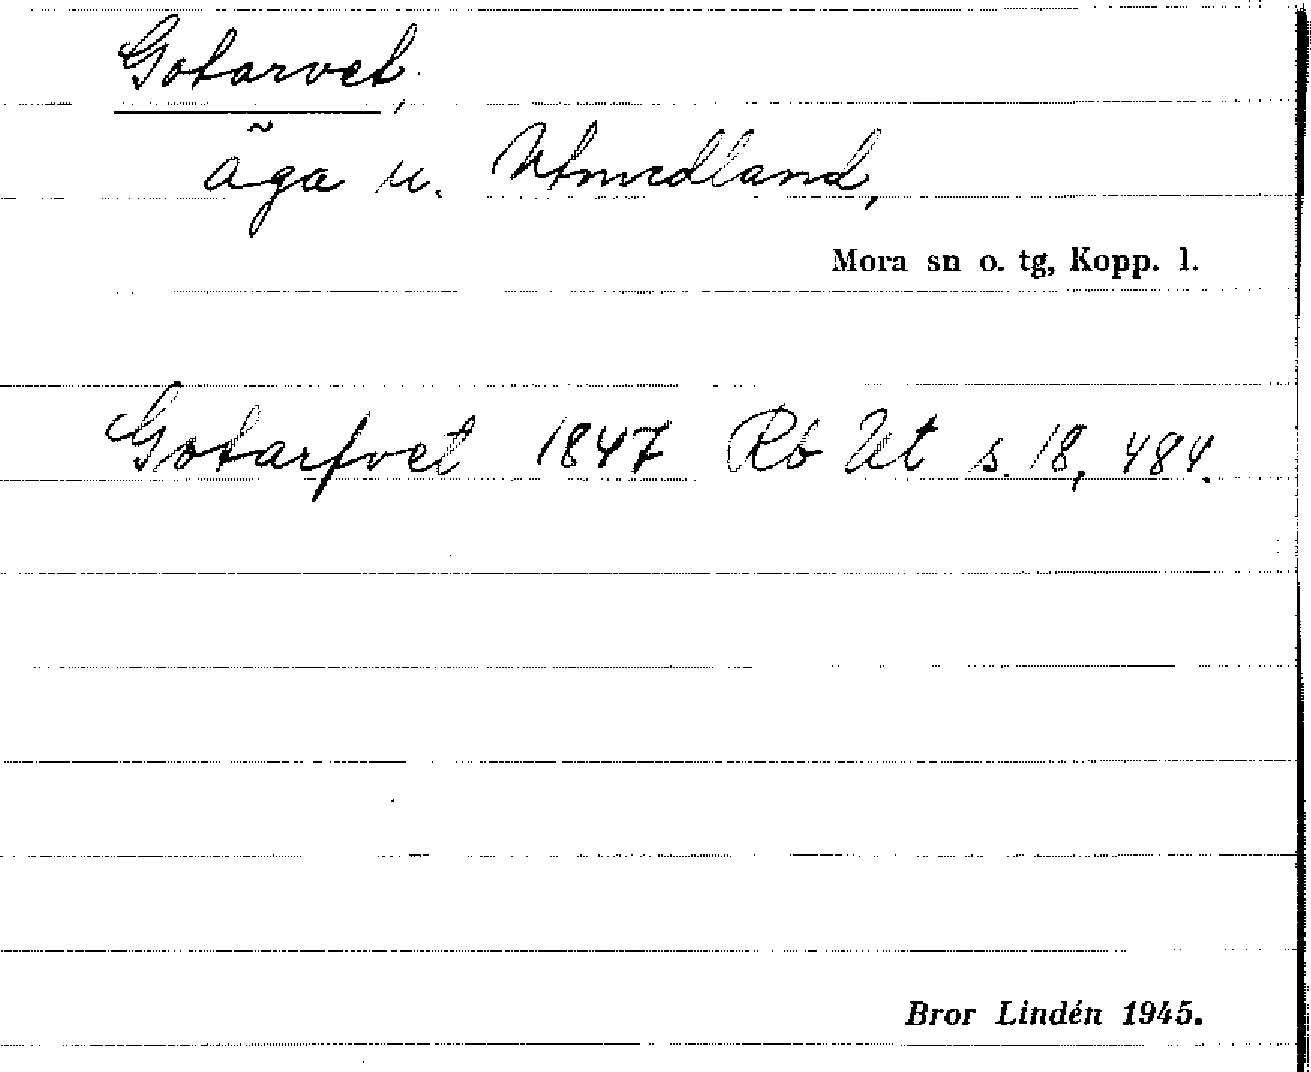 Gotarvet,
äga u. Utmedland,
Mora sn o. tg, Kopp. l.
Gotarfvet 1847 Rb Ut s. 18, 484.
Bror Lindén 1945.